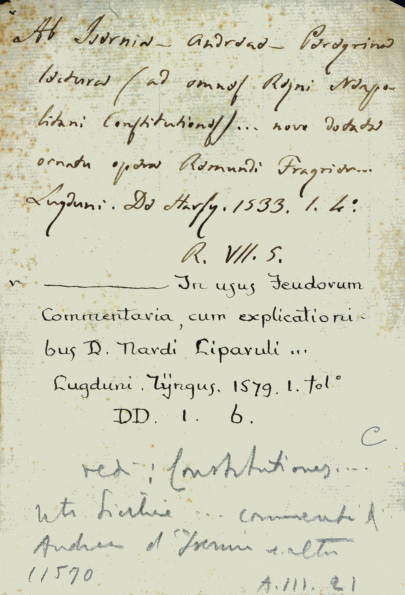 Ab Isernia Andreae Peregrina
lectura (ad omnes Regni Neapo-
litani Constitutiones)... novo dotata
ornatu opera Romundi Fragrior...
Lugduni. De Harsy. 1533. 1. 4.°
R. VII. 5.
In usus Feudorum
Commentaria, cum explicationi-
bus D. Nardi Liparuli ...
Lugduni. Tÿngus. 1579. 1. fol.°
DD. 1. 6.
C
vedi: Constitutiones ...
... commenti d
Andrea d'Isernia e altri
11570
A.III.21